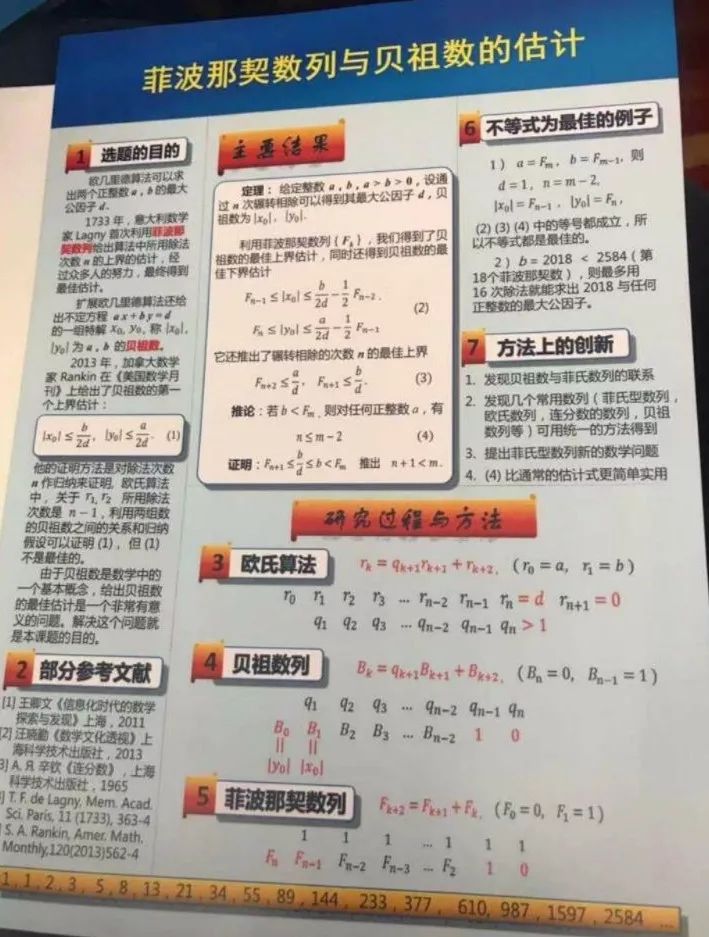 菲波那契数列与贝祖数的估计
1 选题的目的
欧几里德算法可以求
出两个正整数 a，b 的最大
公因子 d.
1733 年，意大利数学
家 Lagny 首次利用菲波那
契数列给出算法中所用除法
次数 n 的上界的估计，经
过众多人的努力，最终得到
最佳估计。
扩展欧几里德算法还给
出不定方程 ax+by=d
的一组特解 x₀, y₀, 称 |x₀|,
|y₀| 为 a，b 的贝祖数。
2013 年，加拿大数学
家 Rankin 在《美国数学月
刊》上给出了贝祖数的第一
个上界估计：
|x₀| ≤ b/2d, |y₀| ≤ a/2d. (1)
他的证明方法是对除法次数
n 作归纳来证明, 欧氏算法
中，关于 r₁, r₂ 所用除法
次数是 n−1，利用两组数
的贝祖数之间的关系和归纳
假设可以证明 (1)，但 (1)
不是最佳的。
由于贝祖数是数学中的
一个基本概念，给出贝祖数
的最佳估计是一个非常有意
义的问题。解决这个问题就
是本课题的目的。
2 部分参考文献
[1] 王卿文《信息化时代的数学
探索与发现》上海，2011
[2] 汪晓勤《数学文化透视》上
海科学技术出版社，2013
3] А. Я. 辛钦《连分数》，上海
科学技术出版社，1965
] T. F. de Lagny, Mem. Acad.
Sci. Paris, 11 (1733), 363-4
] S. A. Rankin, Amer. Math.
Monthly,120(2013)562-4
主要结果
定理：给定整数 a，b，a > b > 0，设通
过 n 次辗转相除可以得到其最大公因子 d，贝
祖数为 |x₀|，|y₀|.
利用菲波那契数列 {Fₖ}，我们得到了贝
祖数的最佳上界估计，同时还得到贝祖数的最
佳下界估计
Fₙ₋₁ ≤ |x₀| ≤ b/2d − 1/2 Fₙ₋₂,
(2)
Fₙ ≤ |y₀| ≤ a/2d − 1/2 Fₙ₋₁
它还推出了辗转相除的次数 n 的最佳上界
Fₙ₊₂ ≤ a/d, Fₙ₊₁ ≤ b/d. (3)
推论：若 b < Fₘ, 则对任何正整数 a，有
n ≤ m − 2 (4)
证明：Fₙ₊₁ ≤ b/d ≤ b < Fₘ 推出 n+1 < m.
6 不等式为最佳的例子
1） a = Fₘ, b = Fₘ₋₁, 则
d = 1, n = m − 2,
|x₀| = Fₙ₋₁, |y₀| = Fₙ,
(2) (3) (4) 中的等号都成立，所
以不等式都是最佳的。
2） b = 2018 < 2584（第
18个菲波那契数），则最多用
16 次除法就能求出 2018 与任何
正整数的最大公因子。
7 方法上的创新
1. 发现贝祖数与菲氏数列的联系
2. 发现几个常用数列（菲氏型数列，
欧氏数列，连分数的数列，贝祖
数列等）可用统一的方法得到
3. 提出菲氏型数列新的数学问题
4. (4) 比通常的估计式更简单实用
研究过程与方法
3 欧氏算法 rₖ = qₖ₊₁rₖ₊₁ + rₖ₊₂, (r₀ = a, r₁ = b)
r₀ r₁ r₂ r₃ … rₙ₋₂ rₙ₋₁ rₙ = d rₙ₊₁ = 0
q₁ q₂ q₃ … qₙ₋₂ qₙ₋₁ qₙ > 1
4 贝祖数列 Bₖ = qₖ₊₁Bₖ₊₁ + Bₖ₊₂, (Bₙ = 0, Bₙ₋₁ = 1)
q₁ q₂ q₃ … qₙ₋₂ qₙ₋₁ qₙ
B₀ B₁ B₂ B₃ … Bₙ₋₂ 1 0
|| ||
|y₀| |x₀|
5 菲波那契数列 Fₖ₊₂ = Fₖ₊₁ + Fₖ, (F₀ = 0, F₁ = 1)
1 1 1 … 1 1 1
Fₙ Fₙ₋₁ Fₙ₋₂ Fₙ₋₃ … F₂ 1 0
1, 1, 2, 3, 5, 8, 13, 21, 34, 55, 89, 144, 233, 377, 610, 987, 1597, 2584 …